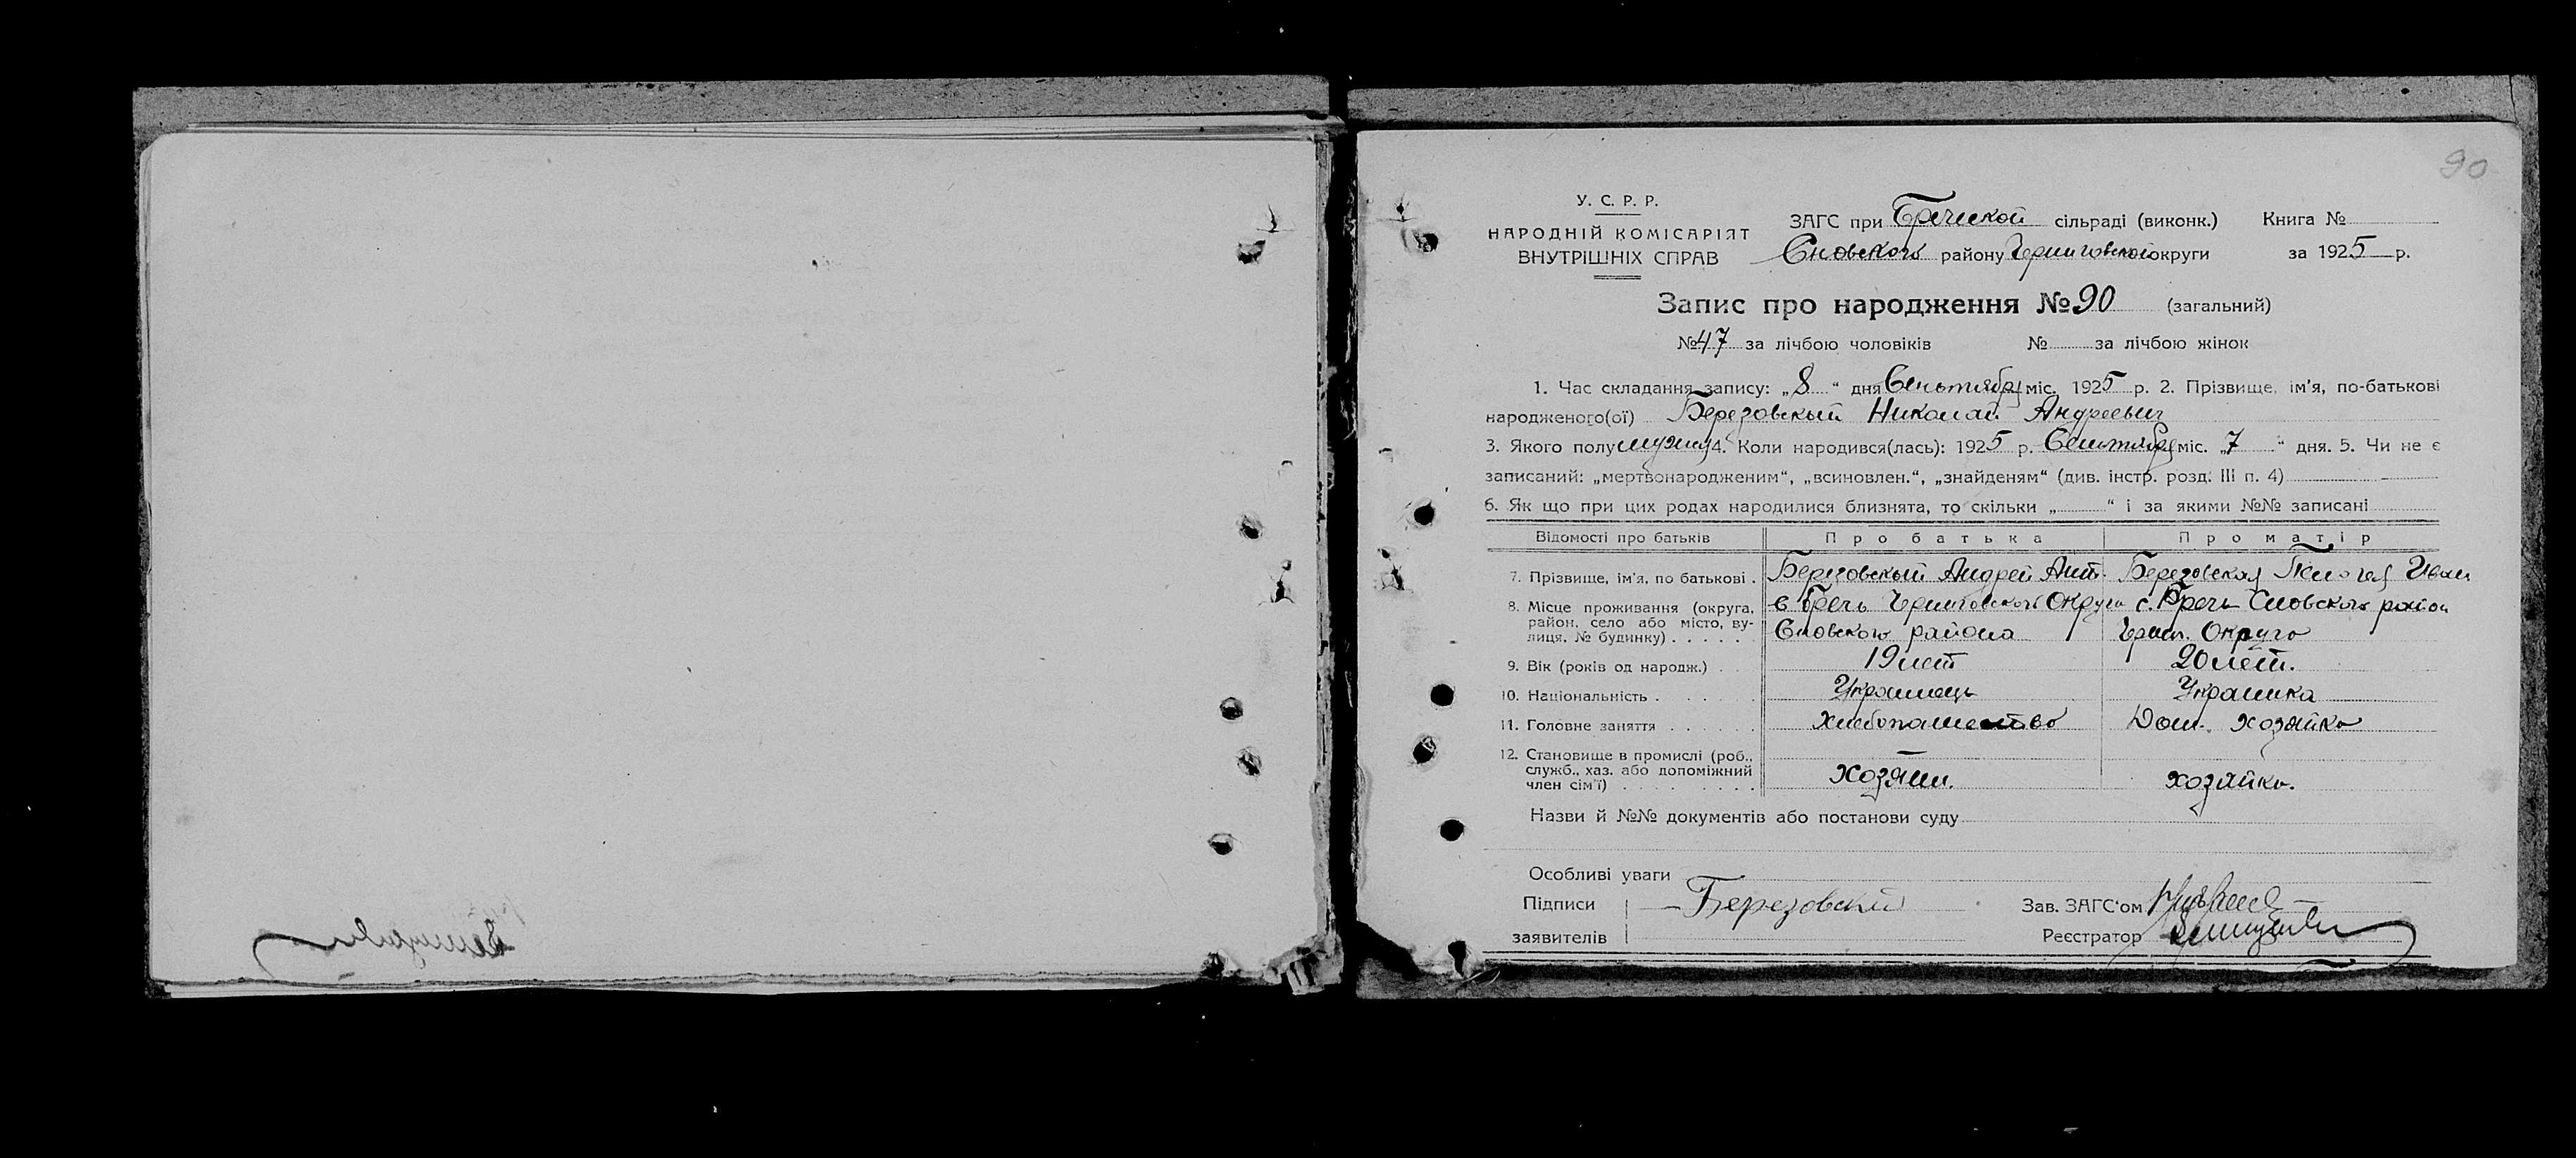 90
У. С. Р. Р.
НАРОДНІЙ КОМІСАРІЯТ
ВНУТРІШНІХ СПРАВ
ЗАГС при Бреческой сільраді (виконк.) Книга №
Сновского району Черниговской округи за 1925 р.
Запис про народження № 90 (загальний)
№ 47 за лічбою чоловіків № за лічбою жінок
1. Час складання запису: „8“ дня Сентября міс. 1925 р. 2. Прізвище, ім’я, по-батькові
народженого(ої) Березовский Николай Андреевич
3. Якого полу мужск 4. Коли народився(лась): 1925 р. Сентября міс. „7“ дня. 5. Чи не є
записаний: „мертвонародженим“, „всиновлен.“, „знайденям“ (див. інстр. розд. III п. 4)
6. Як що при цих родах народилися близнята, то скільки „ “ і за якими №№ записані
Відомості про батьків Про батька Про матір
7. Прізвище, ім’я, по батькові . Березовский Андрей Ант. Березовская Иван
8. Місце проживання (округа, район, село або місто, вулиця, № будинку) . . . . . с. Бречь Черниговского Округа с. Бречь Сновского район
Сновского района Черн. Округа
9. Вік (років од народж.) . . 19 лет 20 лет.
10. Національність . . . . . Украинець Украинка
11. Головне заняття . . . . . . Хлебопашество Дом. хозяйка
12. Становище в промислі (роб., служб., хаз. або допоміжний член сім’ї) . . . . . . . . Хозяин. хозяйка.
Назви й №№ документів або постанови суду
Особливі уваги
Підписи Березовский Зав. ЗАГС’ом
заявителів Реєстратор